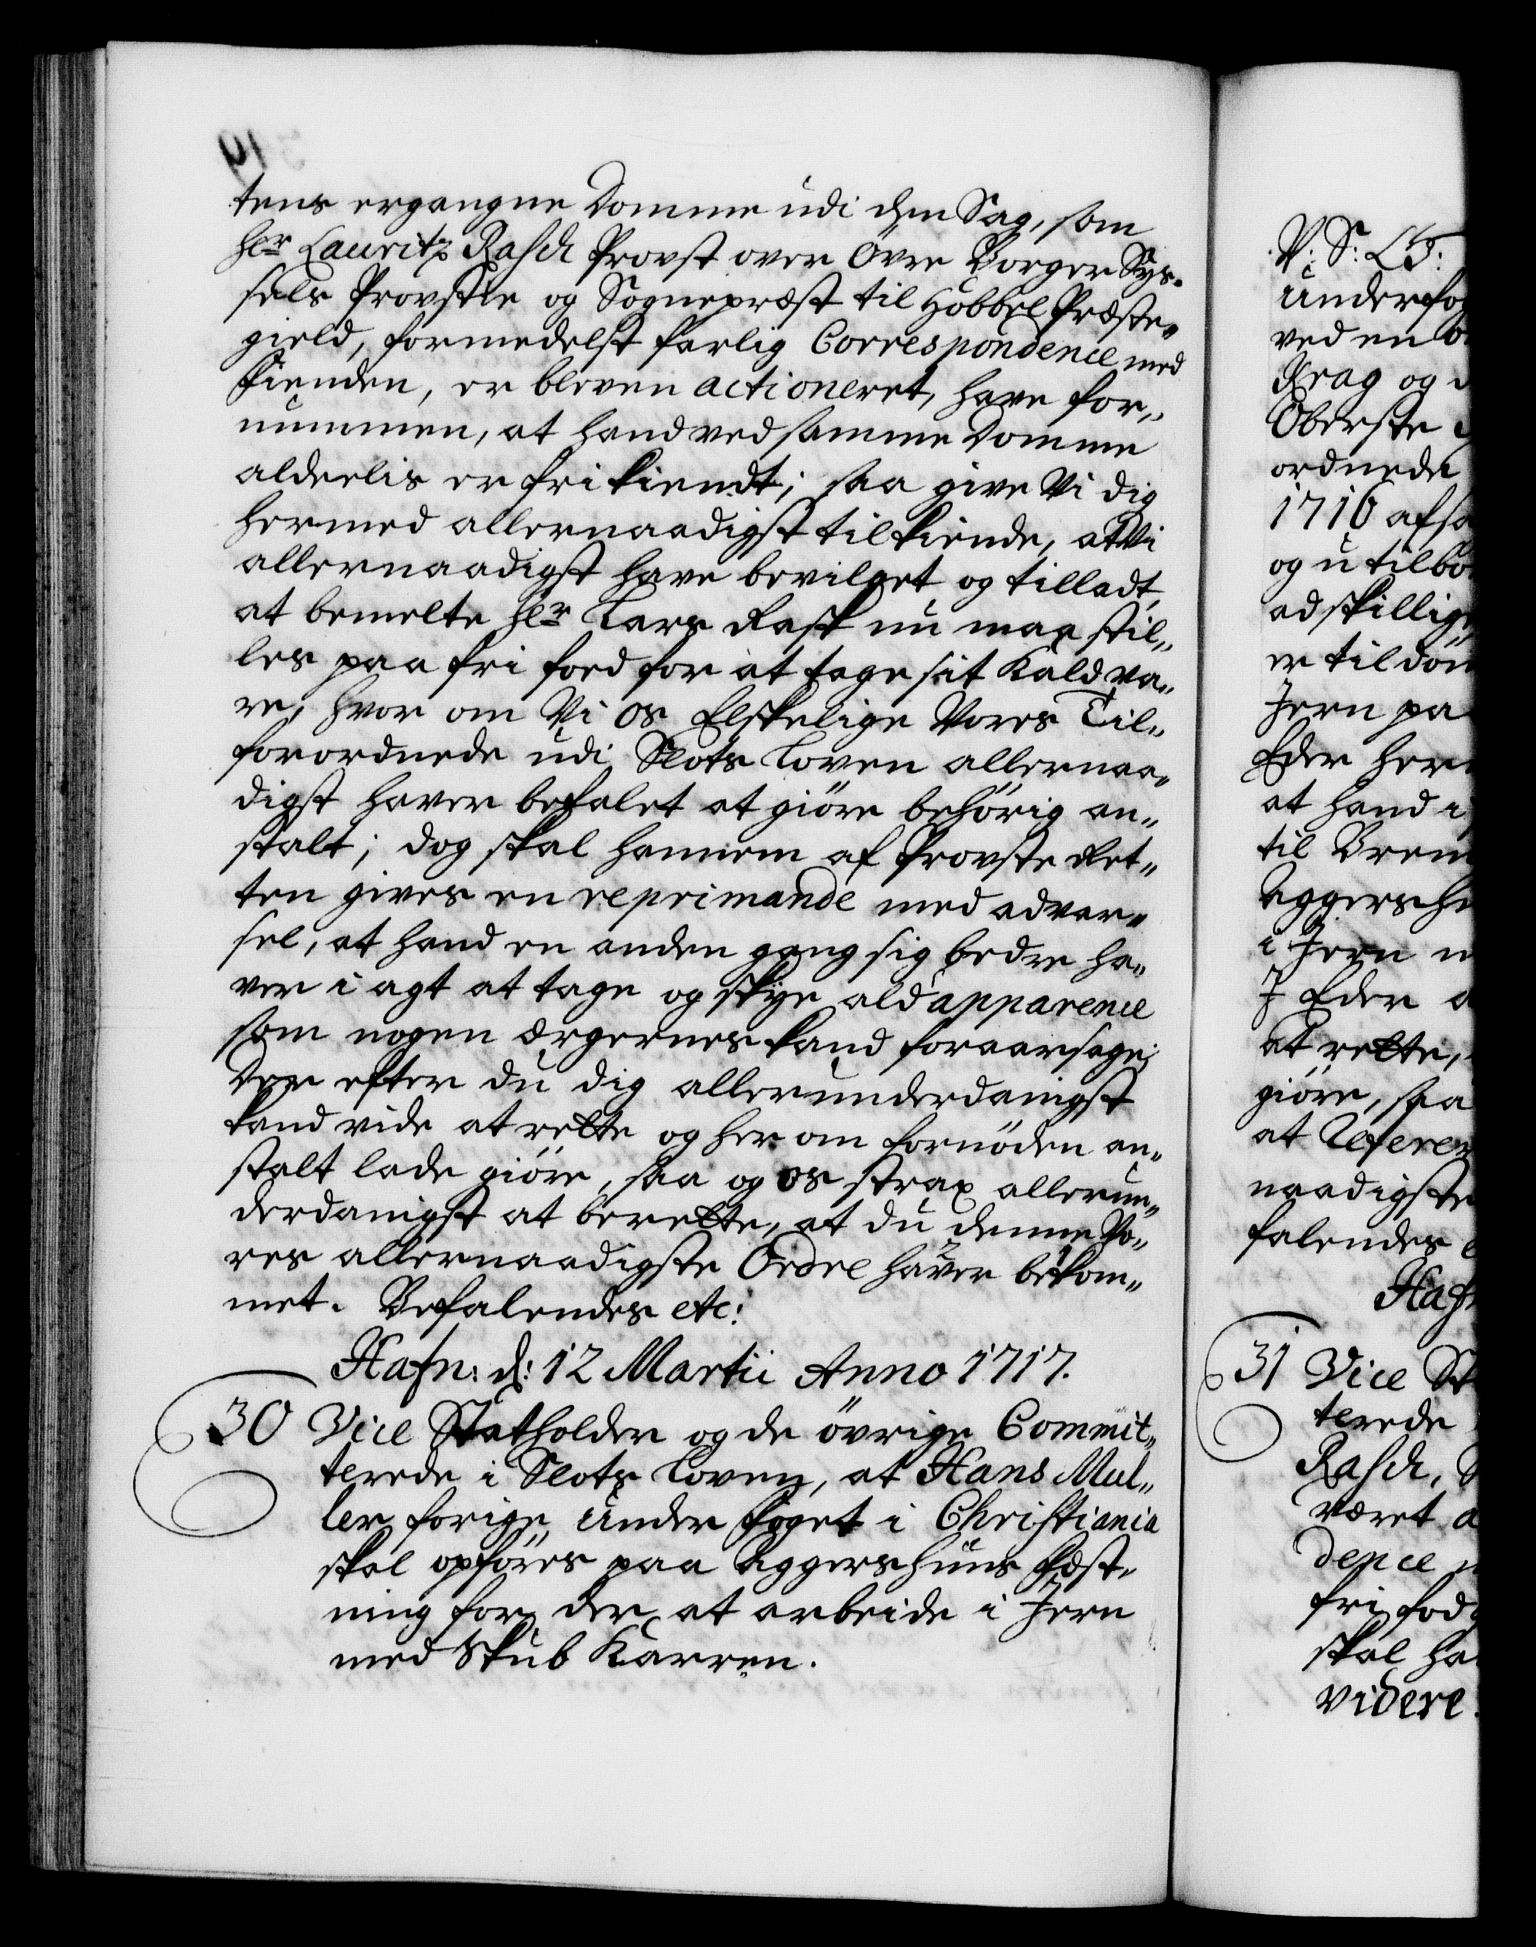 tens ergangne Domme udi den Sag, som
Hr Lauritz Rasch Provst over Övre Borger Sys-
sels Provstie og Sognepræst til Hobbel Præste-
gield, formedelst farlig Correspondence med
Fienden, er bleven actioneret, have for-
nummen, at hand ved samme Domme
alderlis er frikiendt; saa give Vi dig
hermed allernaadigst tilkiende, at Vi
allernaadigst have bevilget og tilladt,
at bemelte Hr Lars Rask nu maa stil-
les paa fri foed for at tage sit Kald va-
re, hvor om Vi os Elskelige Vores Til-
forordnede udi Slots Loven allernaa-
digst haver befalet at giöre behörig an-
stalt; dog skal hannem af Provste Ret-
ten gives en reprimande med advar-
sel, at hand en anden gang sig bedre ha-
ver i agt at tage og skye ald apparence
som nogen ærgernes kand foraarsage;
Der efter du dig allerunderdanigst
kand vide at rette og her om fornöden an-
stalt lade giöre, saa og os strax allerun-
derdanigst at berette, at du denne Vo-
res allernaadigste Ordre haver bekom-
met. Befalendes etc:
Hafn: d: 12 Martii Anno 1717.
30 Vice Statholder og de övrige Commit-
terede i Slots Loven, at Hans Mul-
ler forige Under Foget i Christiania
skal opföres paa Aggershuus Fæst-
ning for der at arbeide i Jern
med Skub Karren.
V: S: G:
Underfog
ved en
Krag og
Oberste
ordnede
1716 afsa
og utilbö
adskillig
er til döm
Jern pa
Eder her
at hand i
til Brem
Aggershu
i Jern
I Eder
at rette,
giöre, saa
at referer
naadigste
falendes
Hafn
31 Vice St
terede
Rasch,
været a
dence
fri fod
skal ha
videre